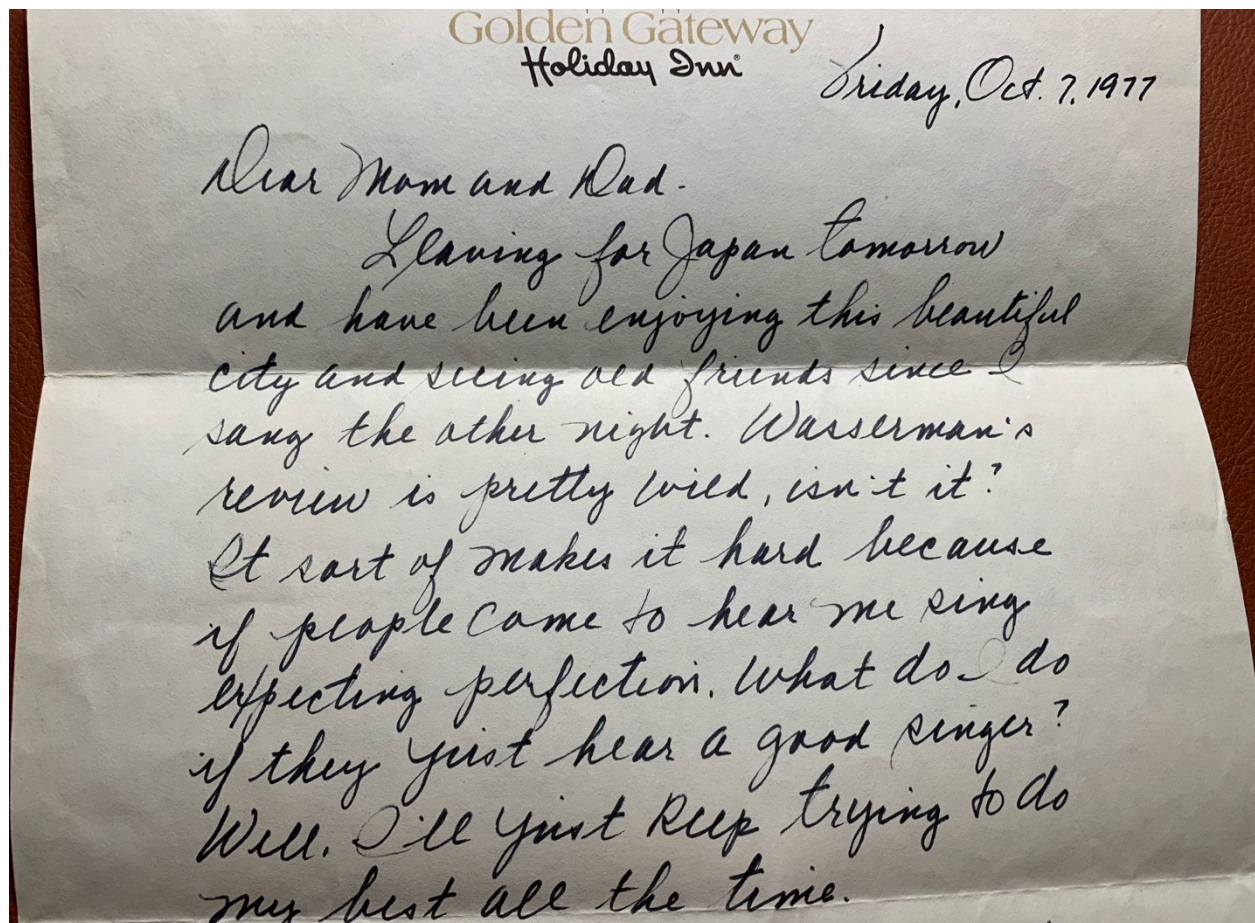 Golden Gateway
Holiday Inn®
Friday, Oct. 7, 1977
Dear Mom and Dad.
Leaving for Japan tomorrow
and have been enjoying this beautiful
city and seeing old friends since I
sang the other night. Wasserman's
review is pretty wild, isn't it?
It sort of makes it hard because
if people come to hear me sing
expecting perfection. What do I do
if they just hear a good singer?
Well. I'll just keep trying to do
my best all the time.